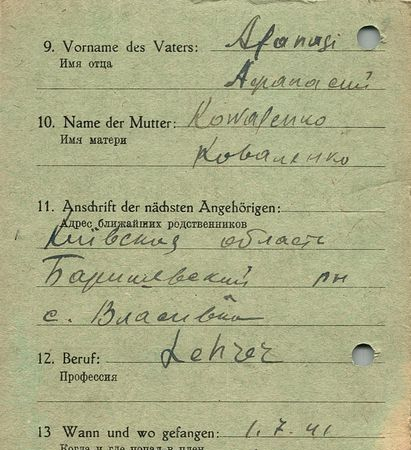 9. Vorname des Vaters: Afanasi
Имя отца Афанасий
10. Name der Mutter: Kowalenko
Имя матери Коваленко
11. Anschrift der nächsten Angehörigen:
Адрес ближайших родственников
Київская область
Баришевский рн
с. Власивка
12. Beruf: Lehrer
Профессия
13 Wann und wo gefangen: 1.7.41
Когда и где попал в плен